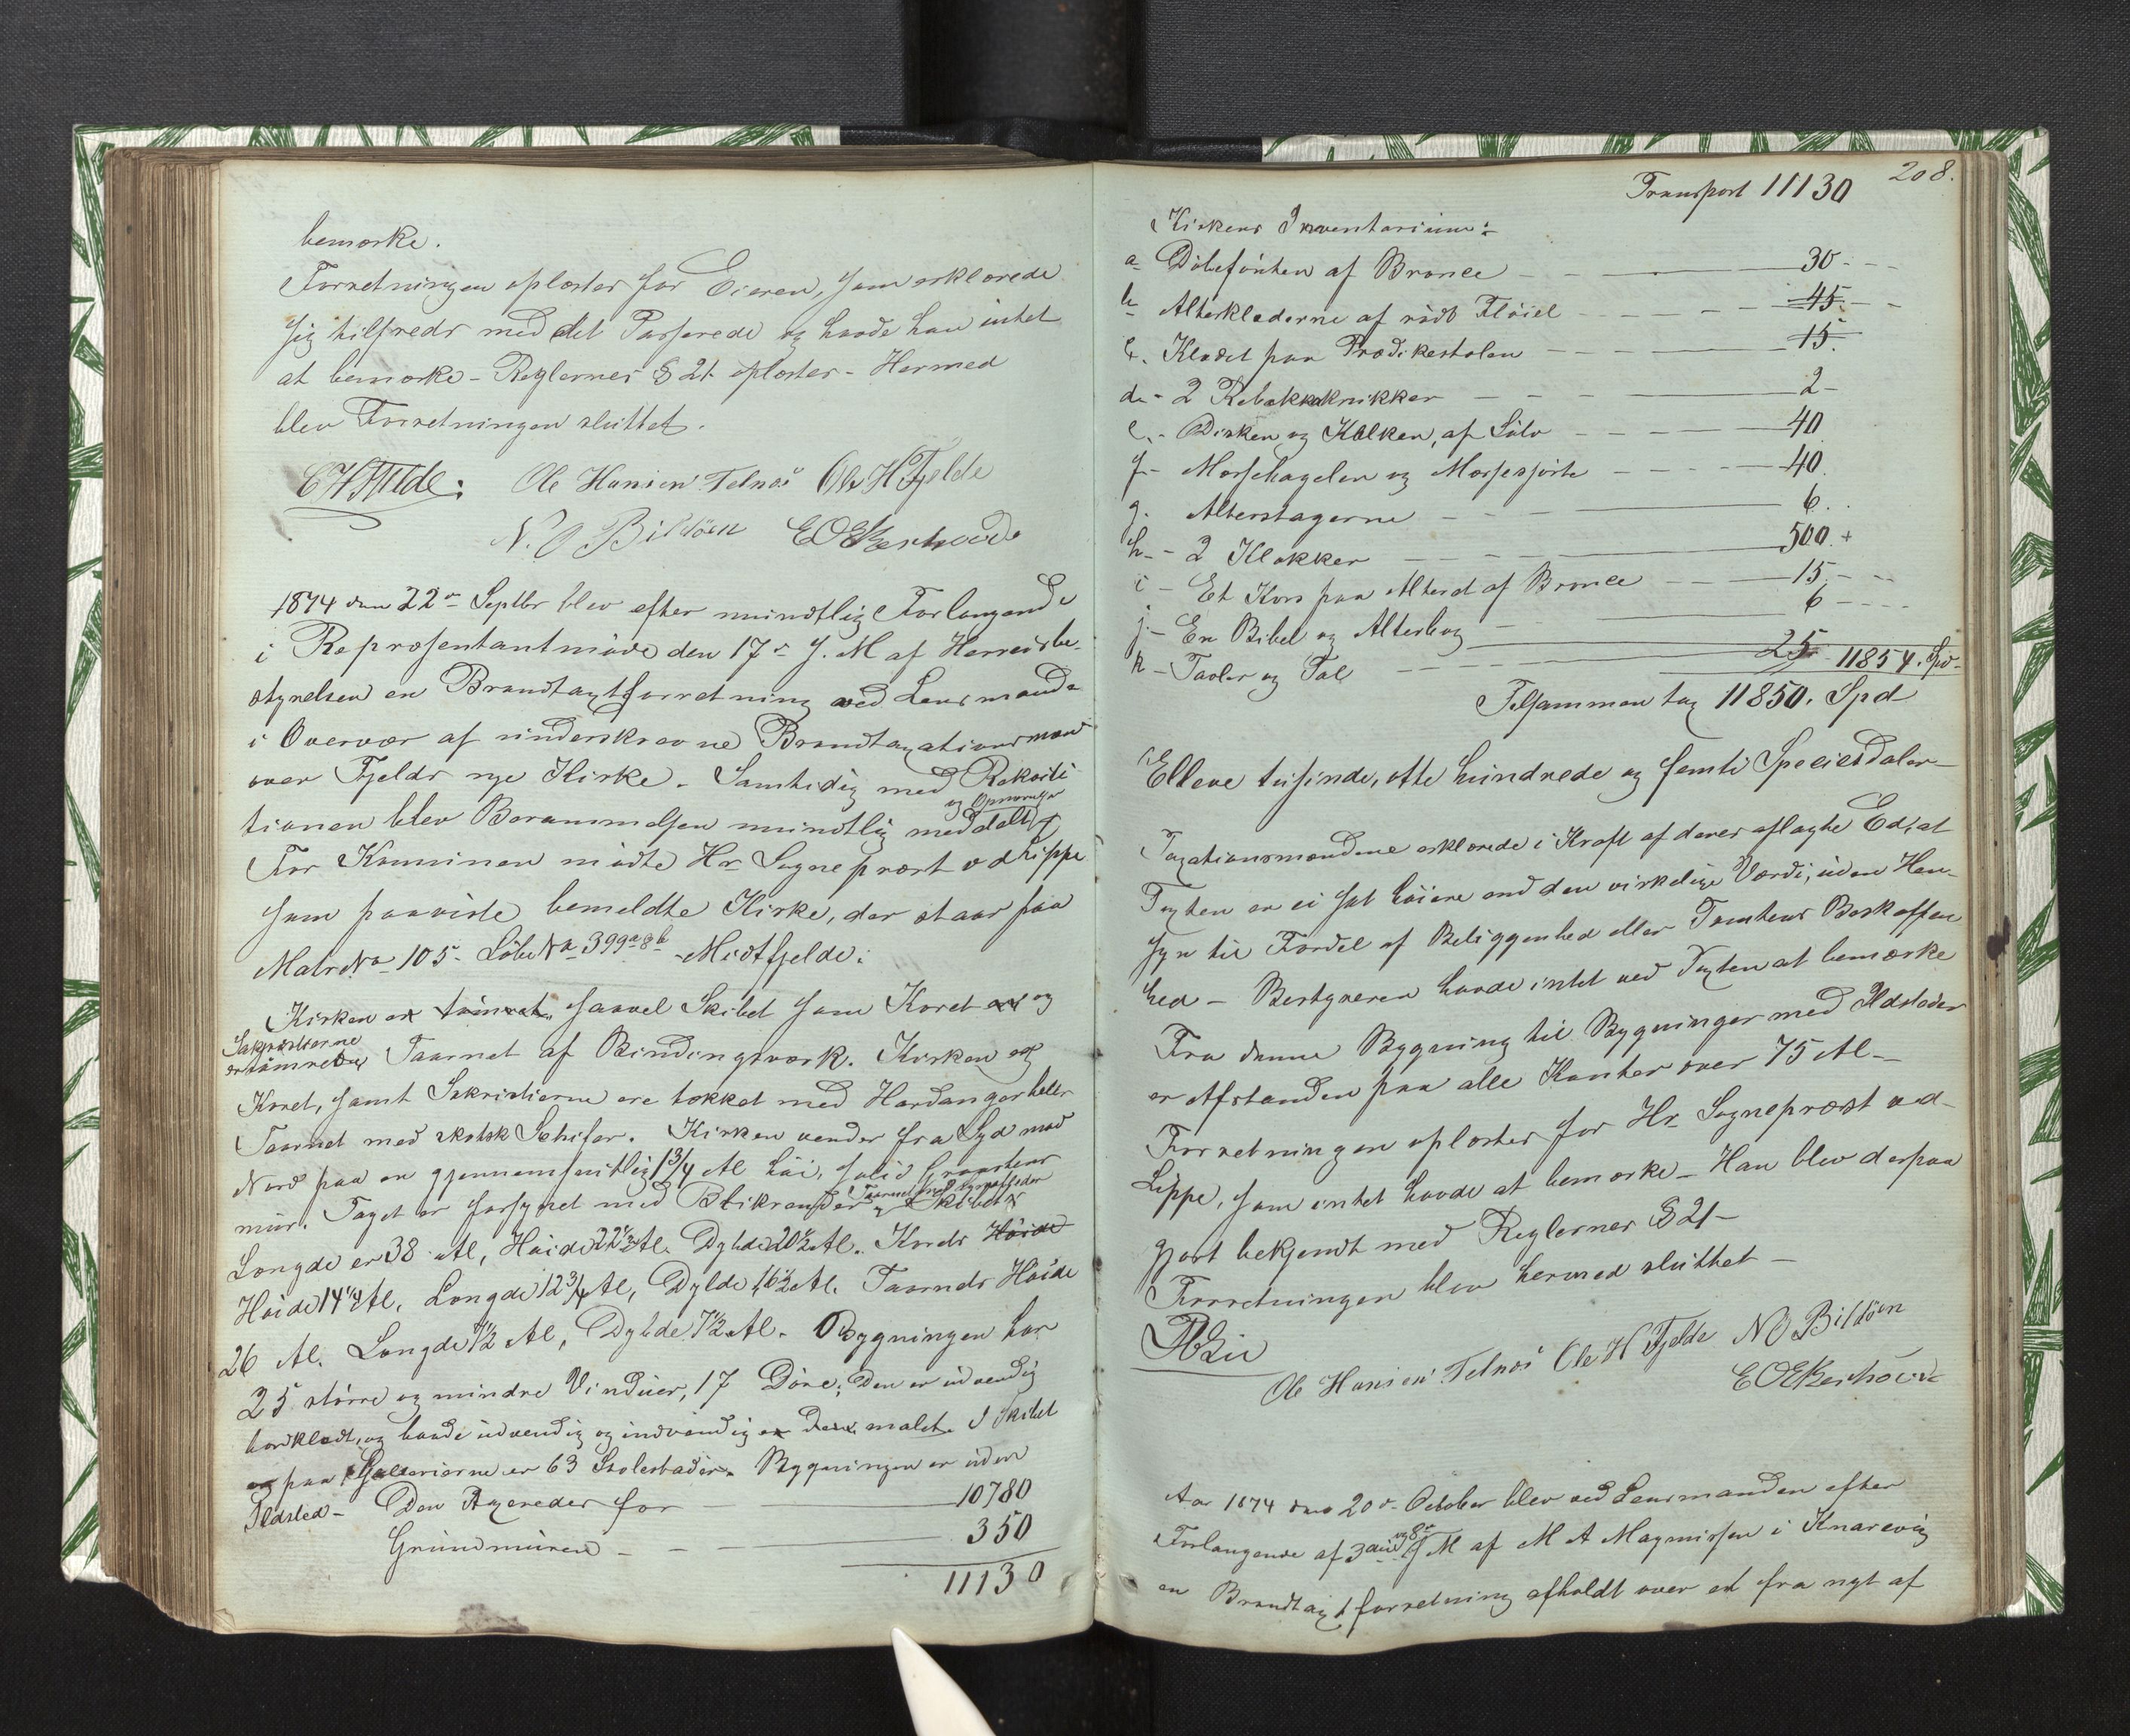 bemærke.
Forretningen oplæstes for Eieren, som erklærede
sig tilfreds med det Passerede og havde han intet
at bemærke - Reglernes § 21 oplæstes - Hermed
blev Forretningen sluttet.
Ole Hansen Telnæs Ole H Fjelde
N. O Bildöen E O Ekerhovde
1874 den 22de Septbr blev efter mundtlig Forlangende
i Repræsentantmøde den 17de d. M af Herredsbe-
styrelsen en Brandtaxtforretning ved Lensmand
i Overvær af underskrevne Brandtaxationsmænd
over Fjelds nye Kirke. Samtidig med Rekvisi-
tionen blev Berammelsen mundtlig meddelt
og Opnævnelse
For Kommunen mødte Hr Sogneprest v d Lippe
som paaviste bemeldte Kirke, der staar paa
Matr No 105 - Løbe No 399 a & b - Midtfjelde.
Kirken er tømret, saavel Skibet som Koret og
Sakristierne
er tømrede Taarnet af Bindingsværk. Kirken og
Koret, samt Sakristierne ere tækket med Hardangerheller
Taarnet med skotsk Schifer. Kirken vender fra Syd mod
Nord paa en gjennemsnitlig 1 3/4 Al høi, solid Graastens
mur. Taget er forsynet med Blikrender Skibets
Længde er 38 Al, Høide 22 1/2 Al. Dybde 20 1/2 Al. Korets Høide
Høide 14 1/4 Al. Længde 12 3/4 Al, Dybde 16 1/2 Al. Taarnets Høide
26 Al. Længde 7 1/2 Al, Dybde 7 1/2 Al. Bygningen har
25 større og mindre Vinduer, 17 Døre; Den er udvendig
bordklædt, og baade udvendig og indvendig er den malet. I Skibet
og paa Gallerierne er 63 Stolestader. Bygningen er uden
Ildsted - Den Taxeredes for 10780
Grundmuren - 350
11130
208.
Transport 11130
Kirkens Inventarium:
a Døbefonten af Bronce 30
b Alterklæderne af rødt Fløiel 45
c. Klædet paa Prædikestolen 15
d - 2 Rebekkakrukker 2
e. - Disken og Kalken, af Sølv 40
f - Messehagelen og Messeskjorte 40
g. Alterstagerne 6
h - 2 Klokker 500
i - Et Kors paa Alteret af Bronce 15
j - En Bibel og Alterbog 6
k - Tavler og Tal 25 11854. Spd
Tilsammen tax 11850. Spd
Elleve tusinde, otte hundrede og femti Speciedaler
Taxationsmændene erklærede i Kraft af deres aflagte Ed, at
Taxten er ei sat høiere end den virkelige Værdi, uden Hen-
syn til Fordel af Beliggenhed eller Tomtens Beskaffen
hed - Bestyreren havde intet ved Taxten at bemærke
Fra denne Bygning til Bygninger med Ildsteder
er Afstanden paa alle Kanter over 75 Al -
Forretningen oplæstes for Hr Sogneprest v d
Lippe, som intet havde at bemærke - Han blev derpaa
gjort bekjendt med Reglernes § 21 -
Forretningen blev hermed sluttet -
Ole Hansen Telnæs Ole H Fjelde N O Bildöen
E O Ekerhovde
Aar 1874 den 20de October blev ved Lensmanden efter
Forlangende af 3die og 8de d M af M A Magnussen i Knarevig
en Brandtaxtforretning afholdt over et fra nyt af